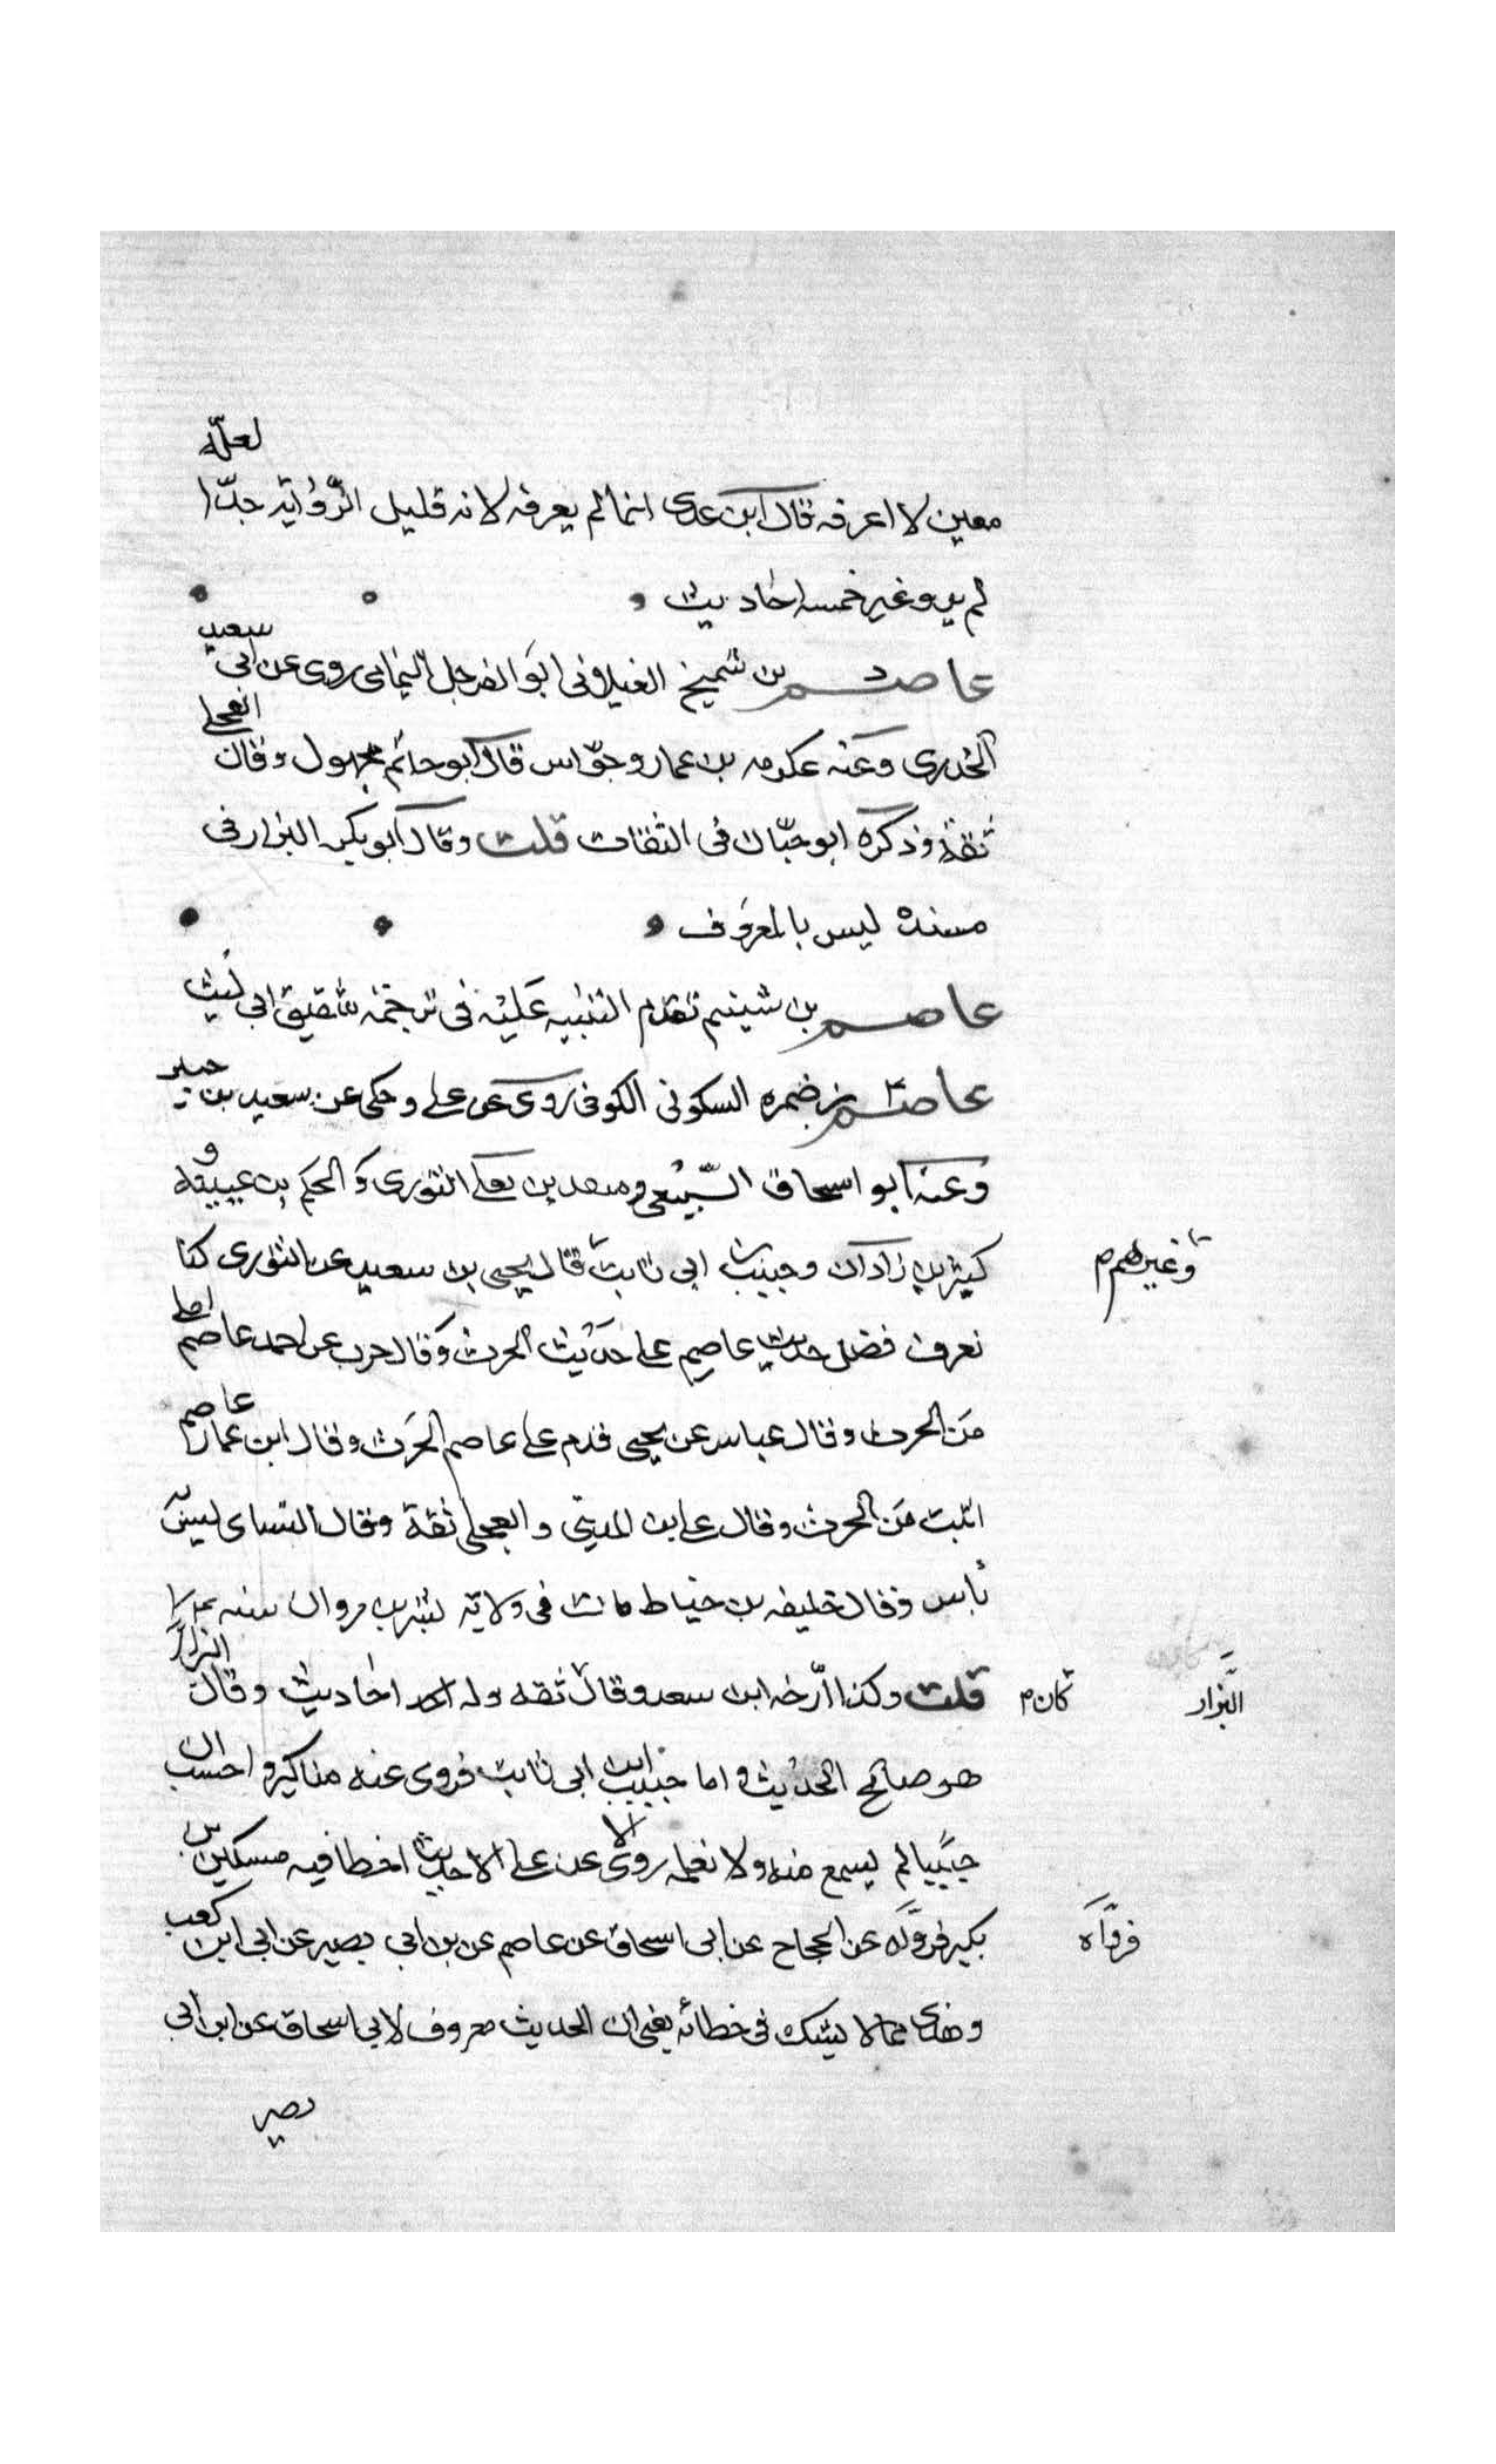 معين لا اعرفه قال ابن عدى انما لم يعرفه لانه قليل الرواية جدا لعله
لم يرو غير خمسه احاديث
عاصم بن شميخ الغيلانى ابو الفرجل اليمامى روى عن ابى سعيد
الخدرى وعنه عكرمه بن عمار وجواس قال ابو حاتم مجهول وقال العجلى
ثقة وذكره ابو حبان فى الثقات قلت وقال ابو بكر البزار فى
مسنده ليس بالمعروف
عاصم بن شنيم تقدم التنبيه عليه فى ترجمة شقيق ابى ليث
عاصم بن ضمره السكونى الكوفى روى عن على وحكى عن سعيد بن جبير
وعنه ابو اسحاق السبيعى و بن يعلى الثورى والحكم بن عيينه و
كثير بن زادان وحبيب ابى ثابت قال يحيى بن سعيد عن الثورى كنا
وغيرهم
نعرف فضل حديث عاصم على حديث الحرث وقال حرب عن احمد عاصم اعلى
من الحرث وقال عباس عن يحيى قدم على عاصم الحرث وقال ابن عمار عاصم
اثبت من الحرث وقال على بن المدينى والعجلى ثقة وقال النساى ليس
باس وقال خليفه بن خياط مات فى ولاية بشر بن مروان سنه
قلت وكذا ارخه ابن سعد وقال ثقه وله احاديث وقال البزار
كان
البزار
هو صالح الحديث واما حبيب ابن ابى ثابت فروى عنه مناكير واحسب ان
حبيبا لم يسمع منه ولا نعلمه روى عن على الا حديث اخطا فيه مسكين بن
بكير فروله عن الحجاج عن ابى اسحاق عن عاصم عن بن ابى بصير عن ابى ابن كعب
فرواه
وهذى مما لا يشك فى خطائه يعنى ان الحديث معروف لابى اسحاق عن ابن ابى
بصير